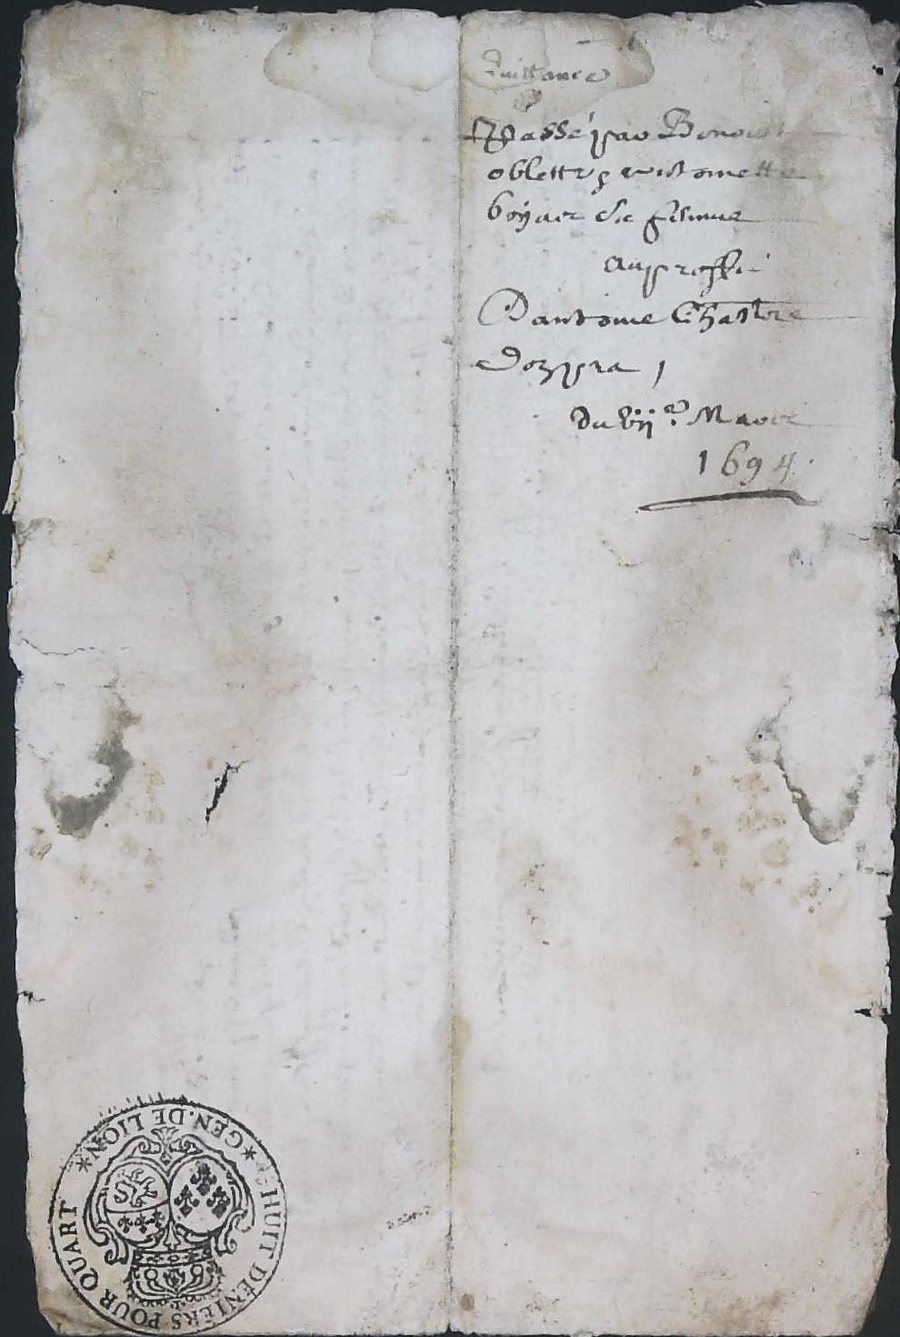 quittance
Passé par Benoist
oblette et
boyer sa femme
au proffit
Dantoine Chastre
Dozpra
du vije. Mars
1694
*GEN.DE LION* HUIT DENIERS POUR QUART